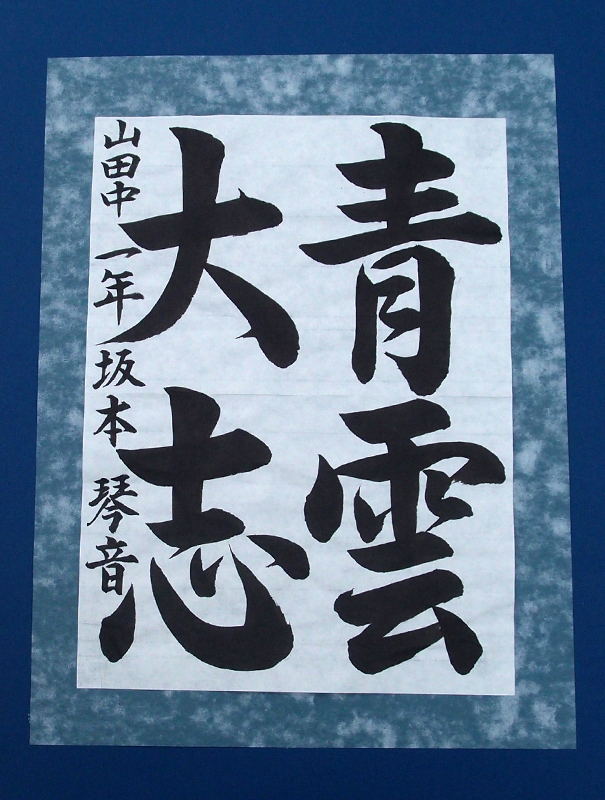 青雲
大志
山田中 一年 坂本 琴音